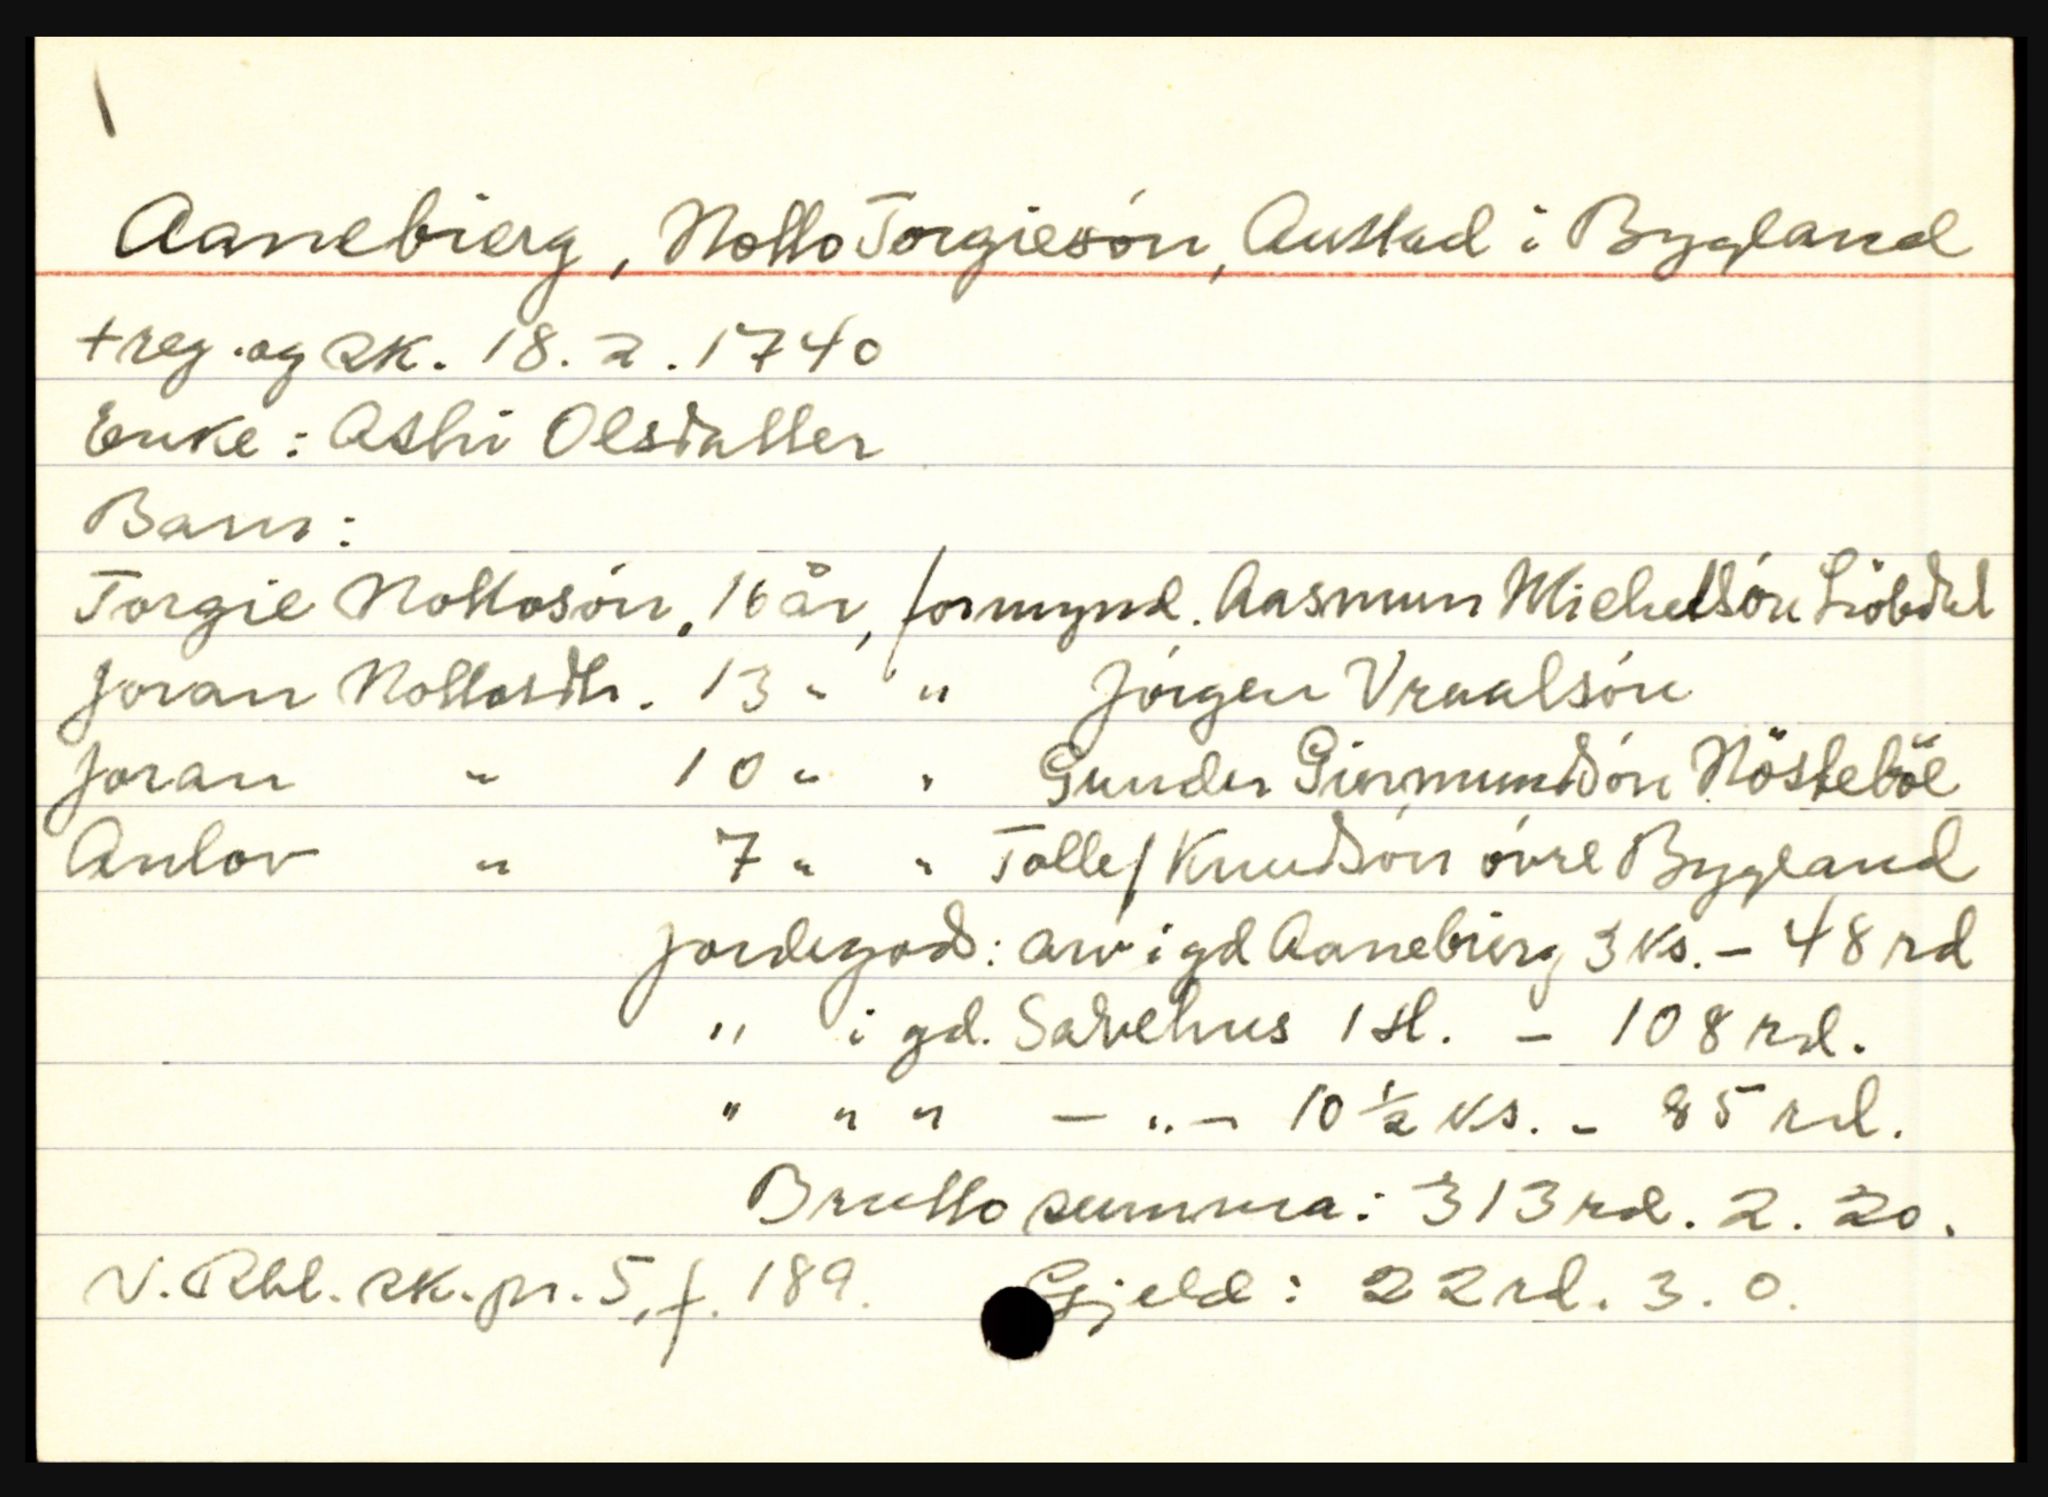 Aanebierg, Notto Torgiesón, Austad i Bygland
+ reg. og sk. 18.2.1740
Enke: Asbi Olsdatter
Barn:
Torgie Nottosón, 16 år, formynd. Aasmun Michelsón Lióbdal
Joran Nottosdtr. 13 " " Jörgen Vraalsón
Joran " 10 " " Gunder Giermundsón Nösteböe
Anlov " 7 " " Tollef Knudsón óvre Bygland
Jordegods: arv i gd Aanebierg 3 ks. - 48 rd
" i gd. Sarvehus 1 hd. - 108 rd.
" " " - " - 10 ½ ks. - 85 rd.
Brutto summa: 313 rd. 2. 20.
N. Rbl. sk. pr. 5, f. 189. Gjeld: 22 rd. 3. 0.